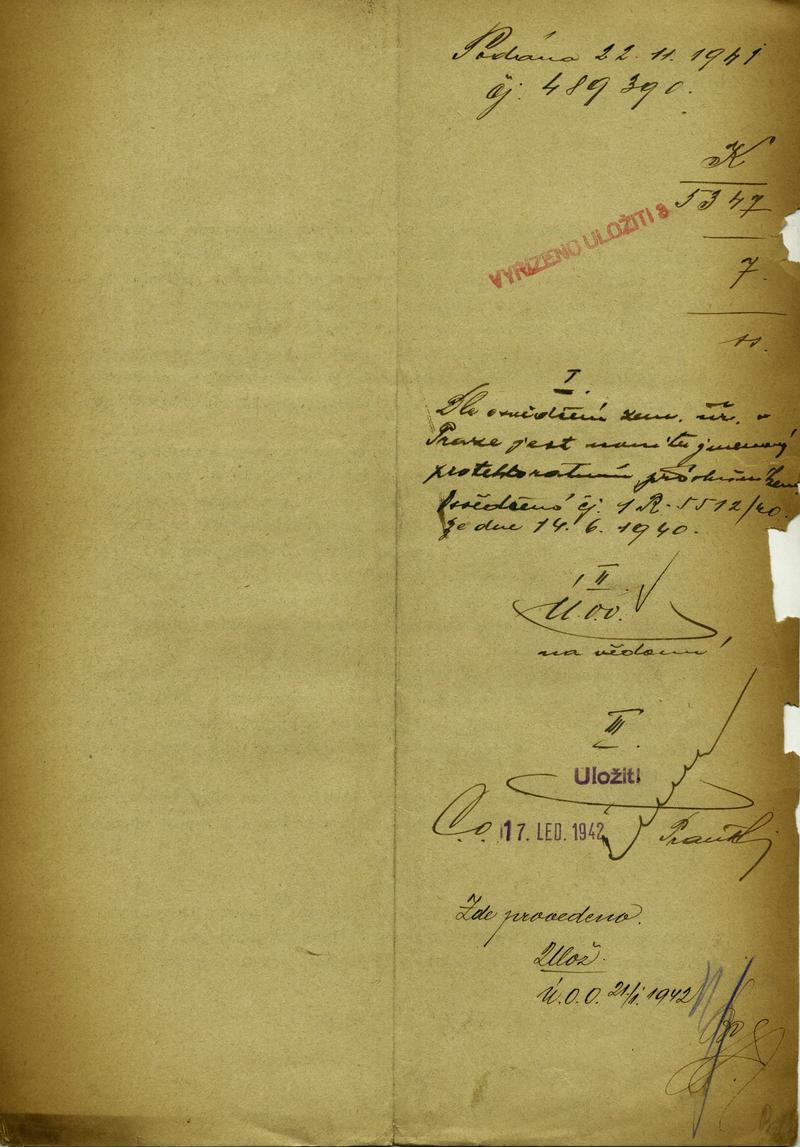 Podána 22. 11. 1941
čj. 489 390.
K
5347
7.
11.
VYŘÍZENO ULOŽITI
I.
Dle osvědčení zem. úř. v
Praze jest nom. tu jmenovaný
protektorátním příslušníkem
Osvědčení čj. 1 R-5512/40.
ze dne 14. 6. 1940.
II
Ú.o.o.
na vědomí
III.
Uložiti
17. LED. 1942
Zde provedeno.
Ulož.
Ú.O.O. 21/I. 1942